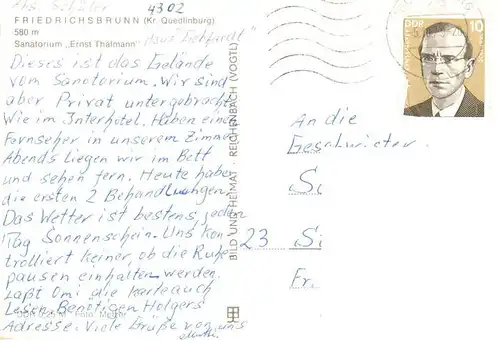 Abs. Schüler
4302
FRIEDRICHSBRUNN (Kr. Quedlinburg)
580 m
Sanatorium „Ernst Thälmann"
Haus
Dieses ist das Gelände
vom Sanatorium. Wir sind
aber Privat untergebracht
Wie im Interhotel. Haben einen
Fernseher in unserem Zimmer
Abends liegen wir im Bett
und sehen fern. Heute haben
die ersten 2 Behandlungen.
Das Wetter ist bestens, jeden
Tag Sonnenschein. Uns kon
trolliert keiner, ob die Ruhe
pausen einhalten werden.
Laßt Omi die Karte auch
lesen. Benötigen Holgers
Adresse. Viele Grüße von uns
BILD UND HEIMAT · REICHENBACH (VOGTL)
DDR
10
An die
Geschwister
Si
23 Si
Fr.